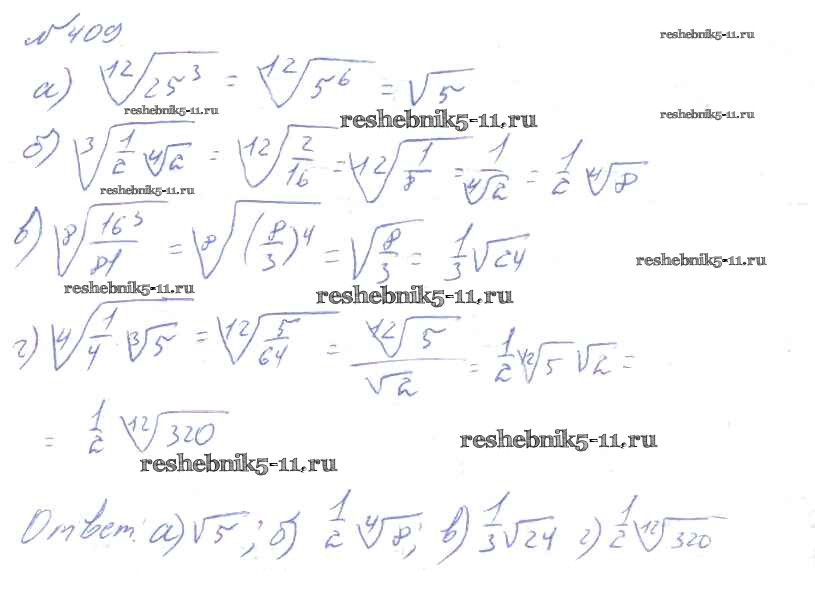 № 409
reshebnik5-11.ru
а) ¹²√(25³) = ¹²√(5⁶) = √5
reshebnik5-11.ru
reshebnik5-11.ru
reshebnik5-11.ru
б) ³√(1/2 ⁴√2) = ¹²√(2/16) = ¹²√(1/8) = 1/⁴√2 = 1/2 ⁴√8
reshebnik5-11.ru
в) ⁸√(16³/81) = ⁸√((8/3)⁴) = √(8/3) = 1/3 √24
reshebnik5-11.ru
reshebnik5-11.ru
reshebnik5-11.ru
г) ⁴√(1/4 ³√5) = ¹²√(5/64) = ¹²√5/√2 = 1/2 ¹²√5 √2 =
= 1/2 ¹²√320
reshebnik5-11.ru
reshebnik5-11.ru
Ответ: а) √5; б) 1/2 ⁴√8; в) 1/3 √24 г) 1/2 ¹²√320